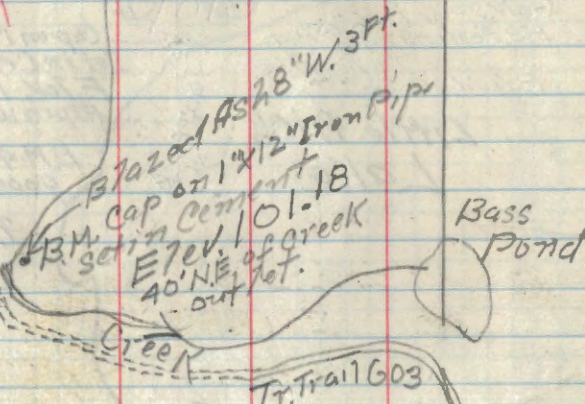 Blazed AS 28" W. 3 Ft.
B.M. cap on 1"x12" Iron Pipe
set in Cement
Elev. 101.18
40' N.E. of Creek
outlet.
Bass
Pond
Creek
Tr. Trail 603